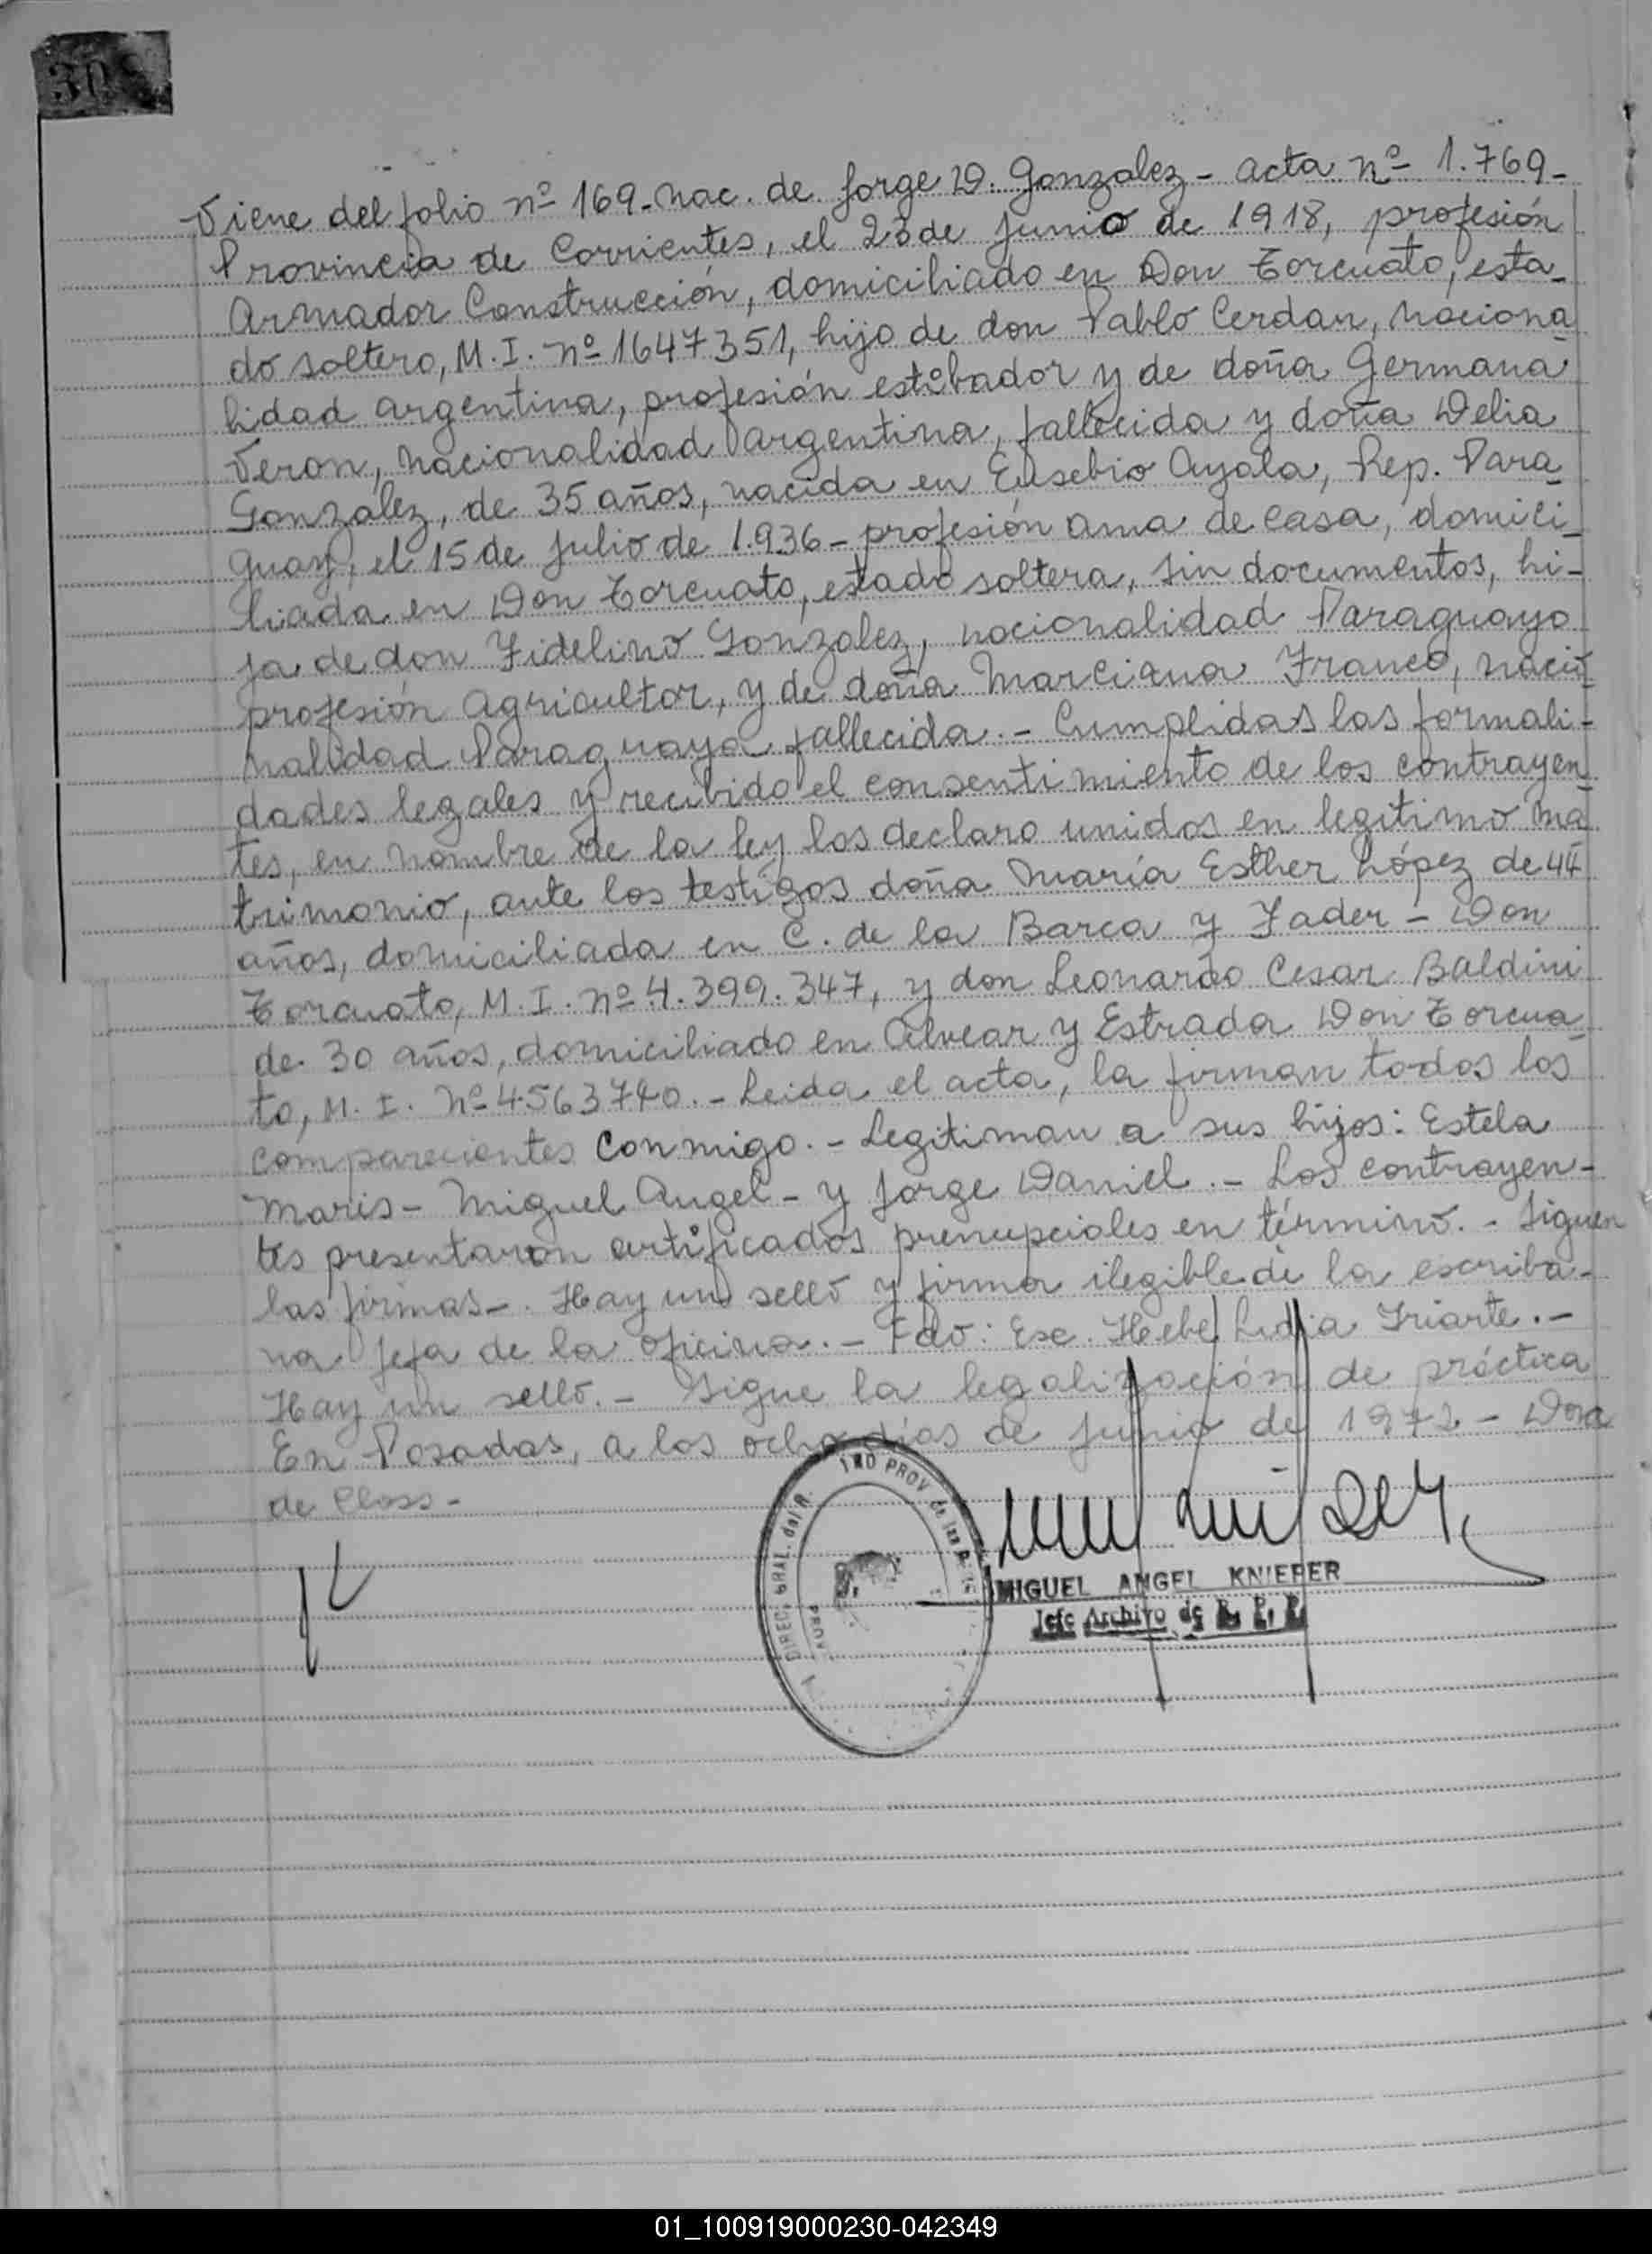 308
Viene del folio nº 169. Nac. de Jorge D. Gonzalez - acta nº 1.769-
Provincia de Corrientes, el 23 de Junio de 1918, profesión
Armador Construcción, domiciliado en Don Torcuato, esta-
do soltero, M. I. nº 1647351, hijo de don Pablo Cerdan, naciona
lidad argentina, profesión estibador y de doña Germana
Veron, nacionalidad argentina, fallecida y doña Delia
Gonzalez, de 35 años, nacida en Eusebio Ayala, Rep. Para
guay, el 15 de Julio de 1.936 - profesión ama de casa, domici-
liada en Don Torcuato, estado soltera, sin documentos, hi-
ja de don Fidelino Gonzalez, nacionalidad Paraguaya
profesión agricultor, y de doña Marciana Franco, nacio
nalidad Paraguaya fallecida. - Cumplidas las formali-
dades legales y recibido el consentimiento de los contrayen
tes, en nombre de la ley los declaro unidos en legítimo ma
trimonio, ante los testigos doña María Esther López de 44
años, domiciliada en C. de la Barca y Fader - Don
Torcuato, M. I. nº 4.399.347, y don Leonardo Cesar Baldini
de 30 años, domiciliado en Alvear y Estrada Don Torcua
to, M. I. Nº 4563740. - Leida el acta, la firman todos los
comparecientes conmigo. - Legitiman a sus hijos: Estela
Maris - Miguel Angel - y Jorge Daniel. - Los contrayen-
tes presentaron certificados prenupciales en término. - Siguen
las firmas -. Hay un sello y firma ilegible de la escriba-
na Jefa de la oficina. - Fdo: Esc. Hebe Lidia Iriarte. -
Hay un sello. - Sigue la legalización de práctica
En Posadas, a los ocho días de Junio de 1972 - Dora
de Closs -
DIREC. GRAL. del R. PROV. de las P.
MIGUEL ANGEL KNIEPER
Jefe Archivo de R. P. P.
01_100919000230-042349